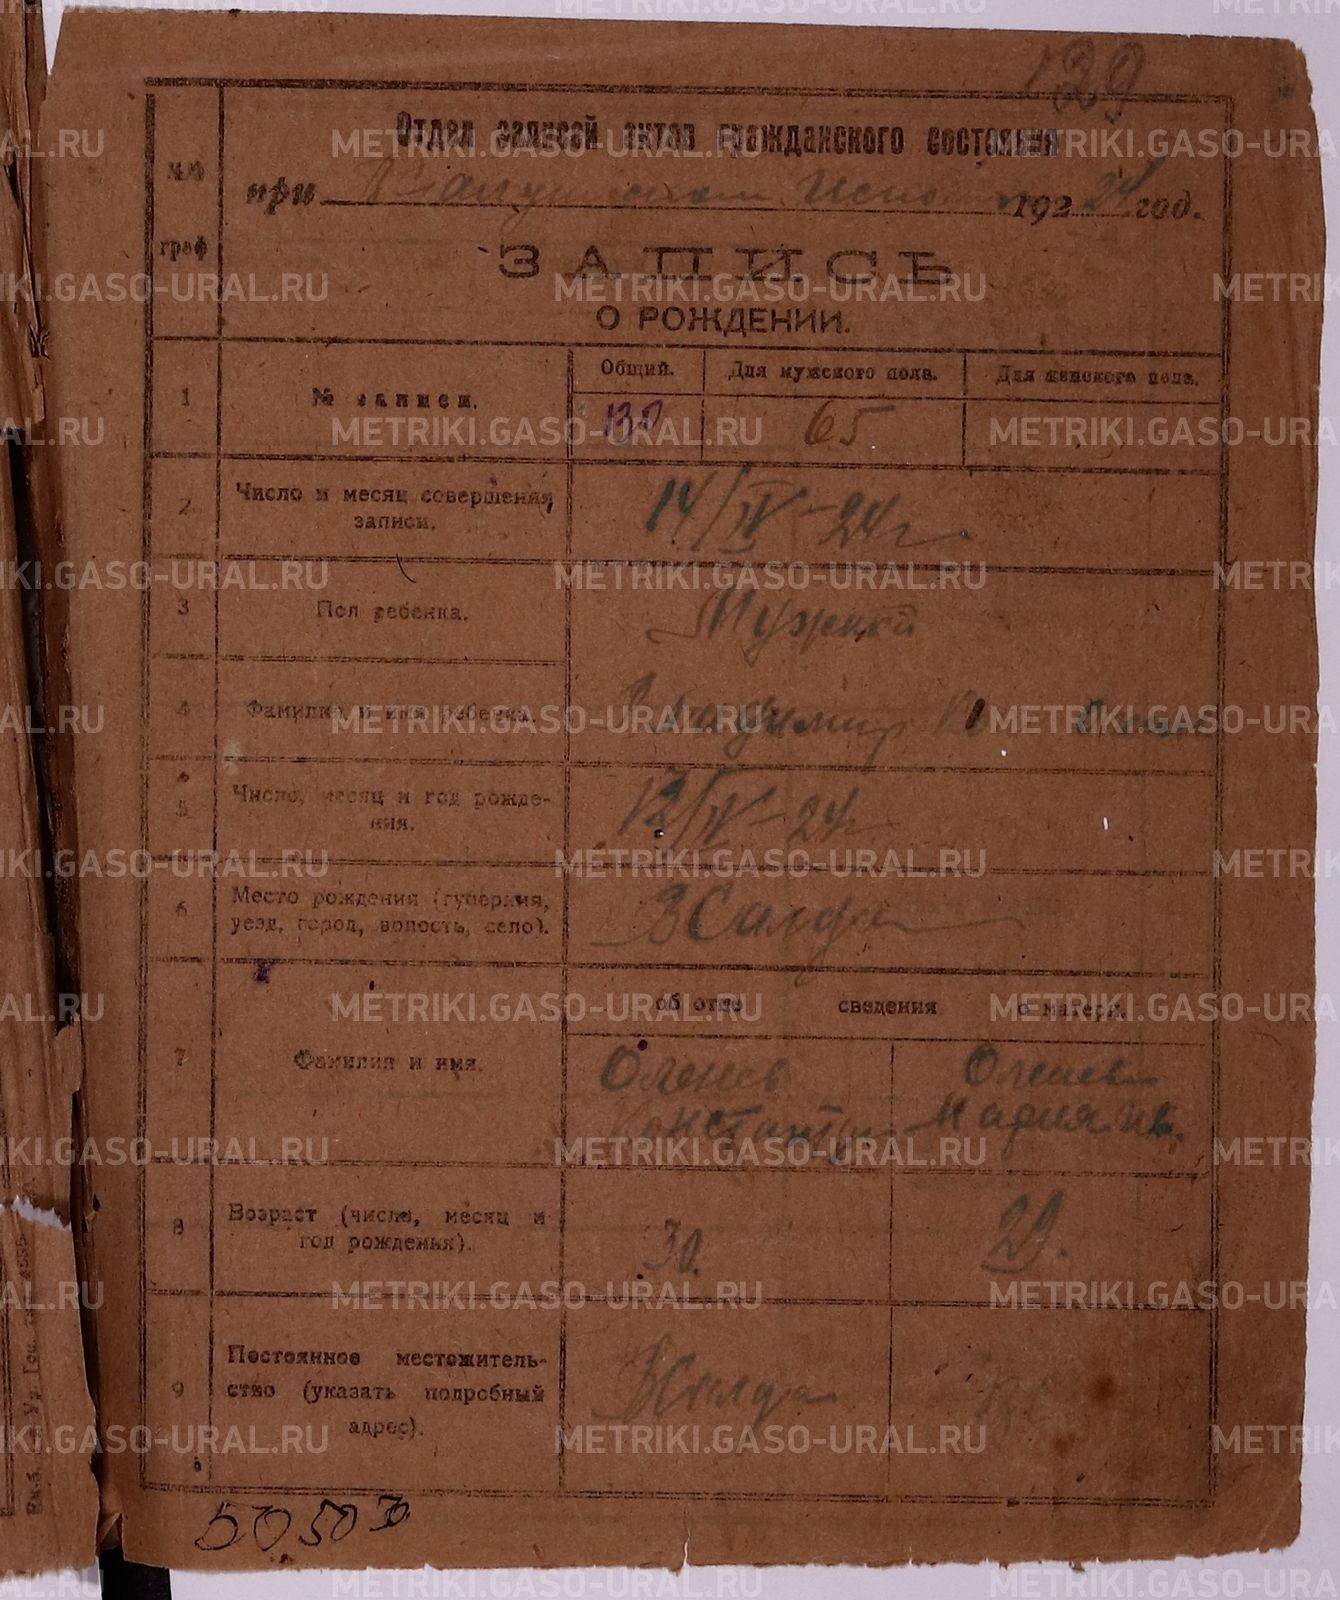 139
Отдел записей актов гражданского состояния
№№ граф
при 1924 год.
ЗАПИСЬ
О РОЖДЕНИИ.
1 № записи.
Общий. Для мужского пола. Для женского пола.
130 65
2 Число и месяц совершения записи.
14/IV-24 г.
3 Пол ребенка.
Мужской
4 Фамилия и имя ребенка.
Владимир
5 Число, месяц и год рождения.
12/IV-24 г
6 Место рождения (губерния, уезд, город, волость, село).
ВСалда
об отце сведения о матери.
7 Фамилия и имя.
Оленев Оленева
Константин Мария Ив.
8 Возраст (число, месяц и год рождения).
30. 29.
9 Постоянное местожительство (указать подробный адрес).
ВСалда
505030
METRIKI.GASO-URAL.RU